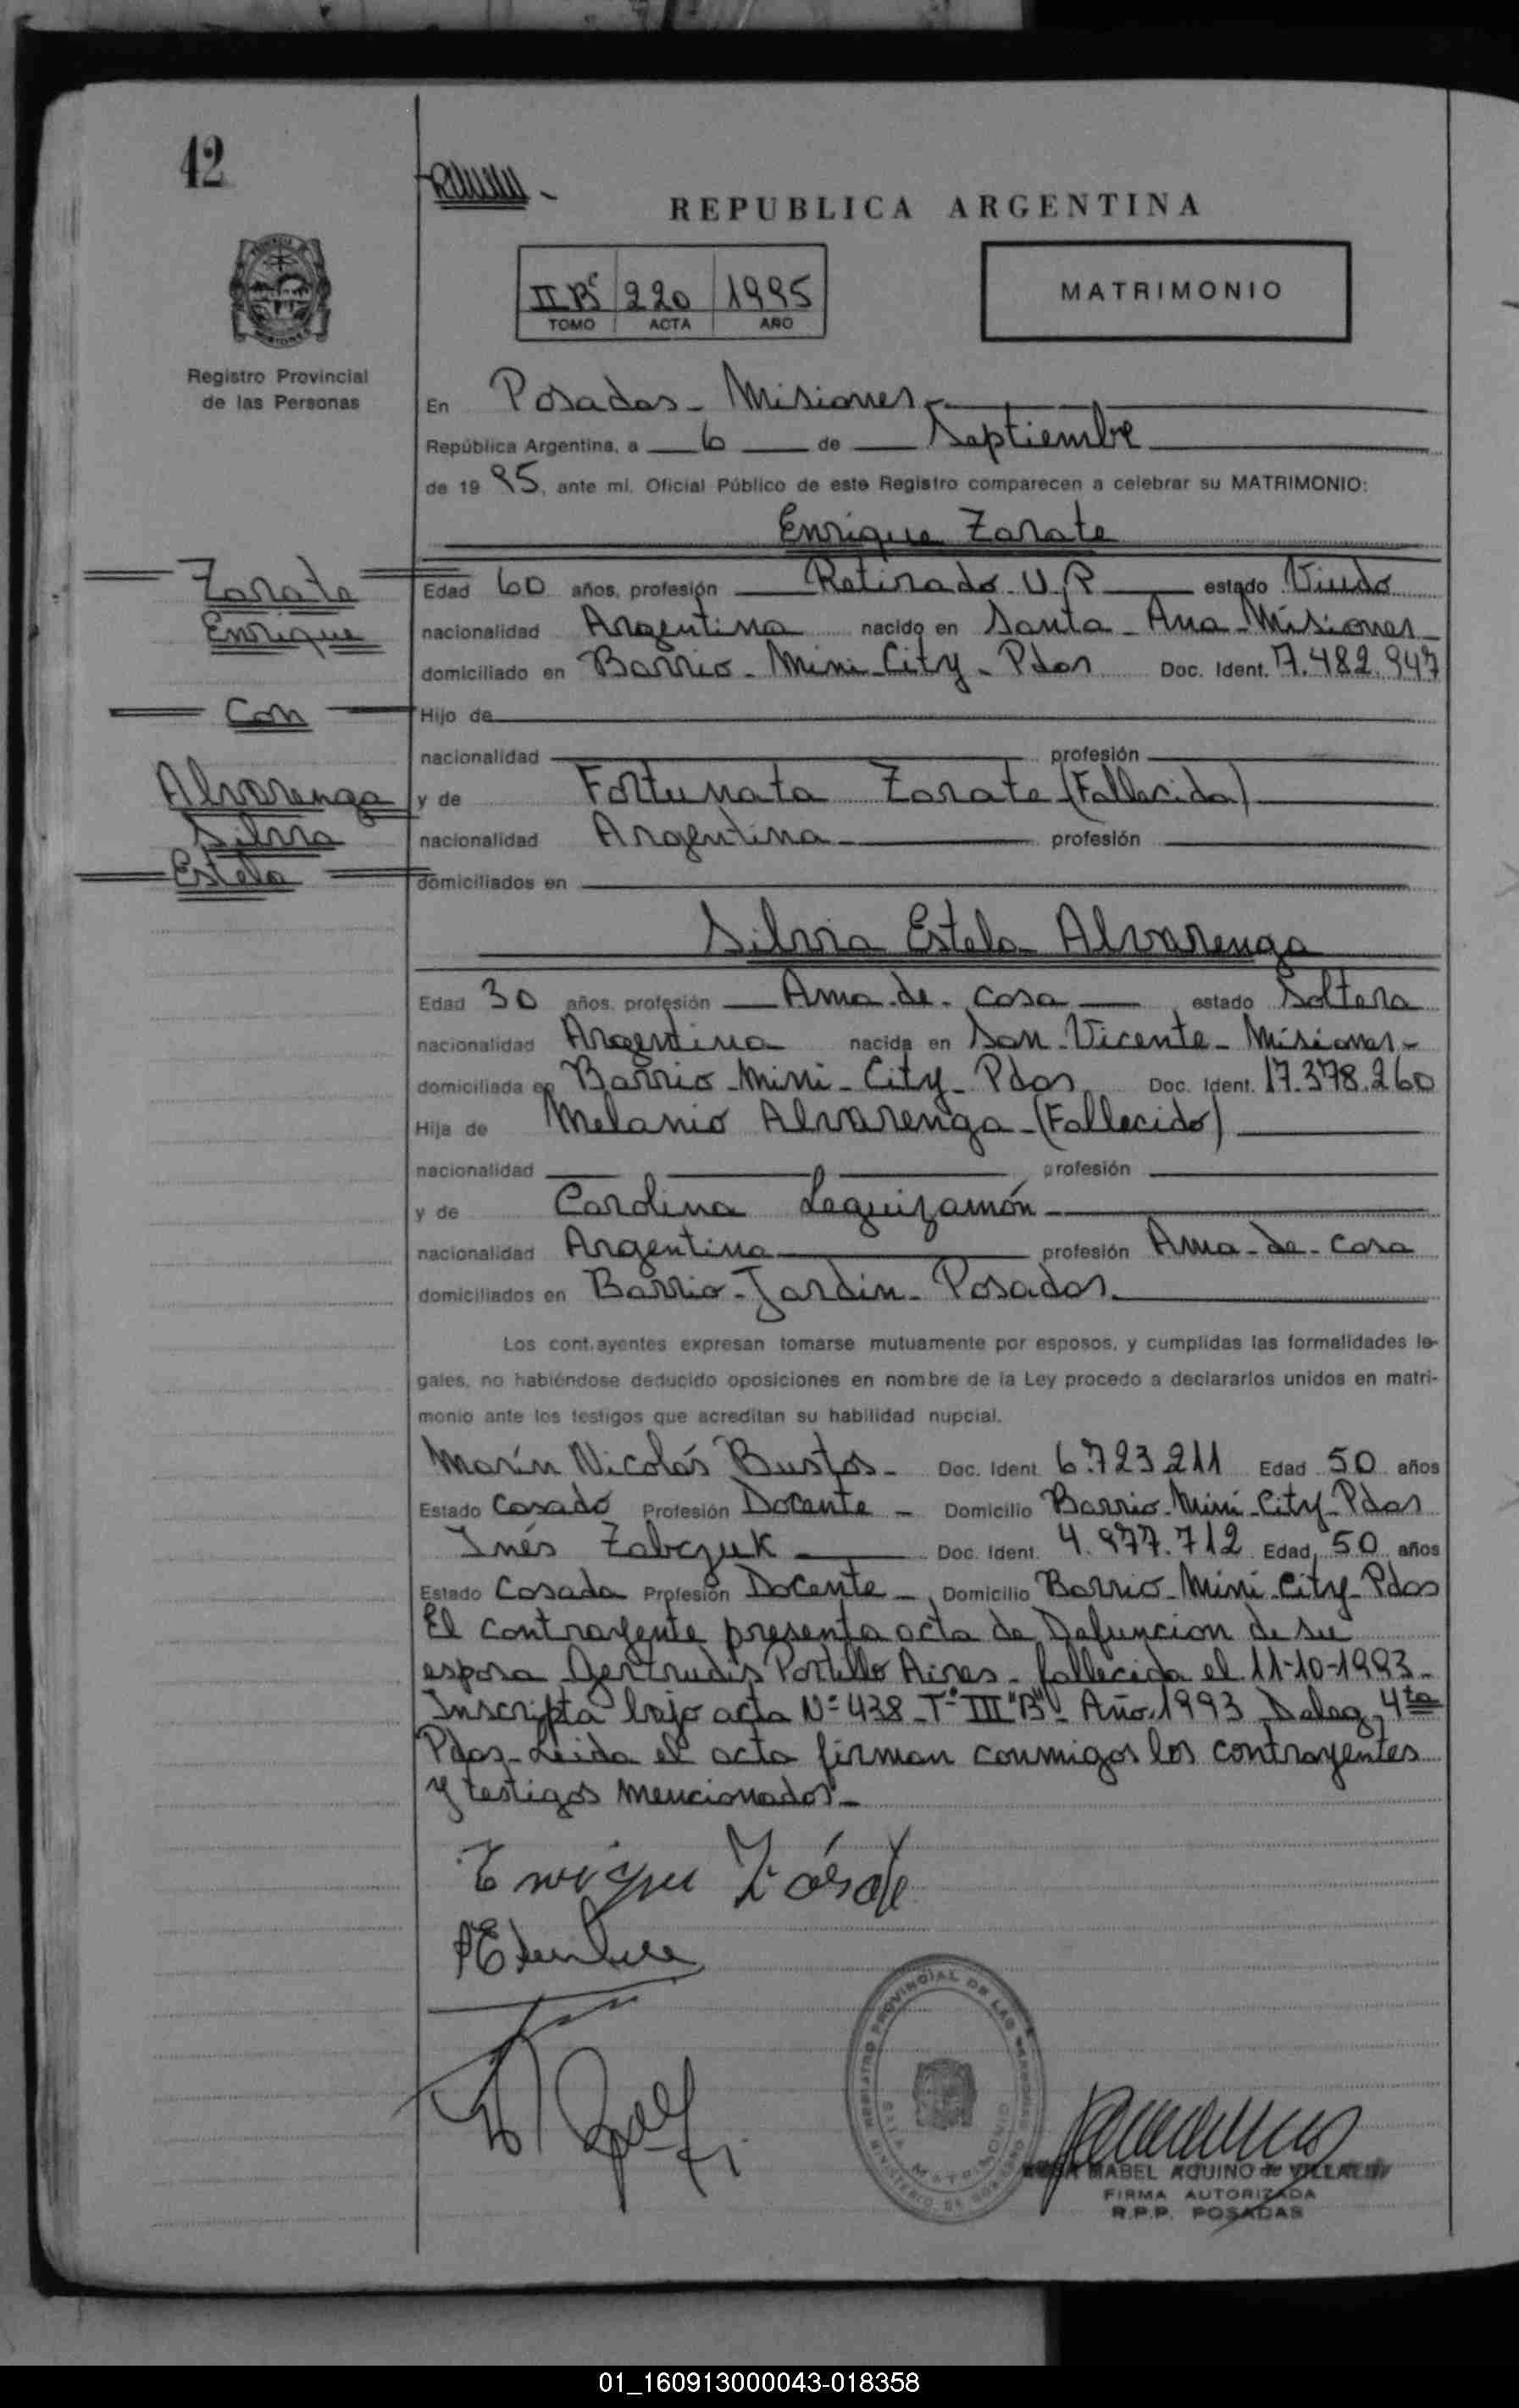 42
REPUBLICA ARGENTINA
II Bº 220 1995
TOMO ACTA AÑO
MATRIMONIO
Registro Provincial
de las Personas
En Posadas - Misiones
República Argentina, a 6 de Septiembre
de 1995, ante mi, Oficial Público de este Registro comparecen a celebrar su MATRIMONIO:
Enrique Zarate
Zarate
Enrique
con
Alvarenga
Silvia
Estela
Edad 60 años, profesión Retirado U.P. estado Viudo
nacionalidad Argentina nacido en Santa - Ana - Misiones
domiciliado en Barrio - Mini - City - Pdas Doc. Ident. 7.482.947
Hijo de
nacionalidad profesión
y de Fortunata Zarate (Fallecida)
nacionalidad Argentina profesión
domiciliados en
Silvia Estela Alvarenga
Edad 30 años, profesión Ama - de - casa estado Soltera
nacionalidad Argentina nacida en San - Vicente - Misiones -
domiciliada en Barrio - Mini - City - Pdas Doc. Ident. 17.378.260
Hija de Melanio Alvarenga - (Fallecido)
nacionalidad profesión
y de Carolina Leguizamón
nacionalidad Argentina profesión Ama - de - casa
domiciliados en Barrio - Jardin - Posadas
Los contrayentes expresan tomarse mutuamente por esposos, y cumplidas las formalidades le-
gales, no habiéndose deducido oposiciones en nombre de la Ley procedo a declararlos unidos en matri-
monio ante los testigos que acreditan su habilidad nupcial.
Marín Nicolás Bustos - Doc. Ident. 6.723.211 Edad 50 años
Estado Casado Profesión Docente - Domicilio Barrio - Mini - City - Pdas
Inés Zabczuk Doc. Ident. 4.977.712 Edad 50 años
Estado Casada Profesión Docente - Domicilio Barrio - Mini - City - Pdas
El contrayente presenta acta de Defuncion de su
esposa Gertrudis Portillo Aires - fallecida el 11-10-1993 -
Inscripta bajo acta Nº 438 - Tº III "B" - Año 1993 Deleg. 4ta
Pdas - Leida el acta firman conmigos los contrayentes
y testigos mencionados -
Enrique Zárate
REGISTRO PROVINCIAL DE LAS PERSONAS
MINISTERIO DE GOBIERNO
MABEL AQUINO de VILLALBA
FIRMA AUTORIZADA
R.P.P. POSADAS
01_160913000043-018358